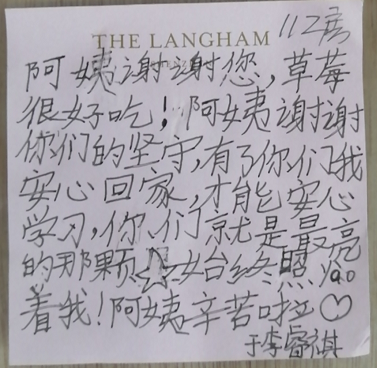 112房
THE LANGHAM
阿姨谢谢您，草莓
很好吃！阿姨谢谢
你们的坚守，有了你们我
安心回家，才能安心
学习，你们就是最亮
的那颗☆始终照yao
着我！阿姨辛苦啦♡
于李睿祺